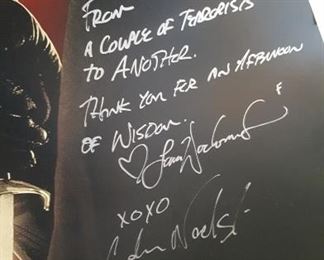 FROM
A COUPLE OF TERRORISTS
TO ANOTHER.
THANK YOU FOR AN AFTERNOON
OF WISDOM.
XOXO